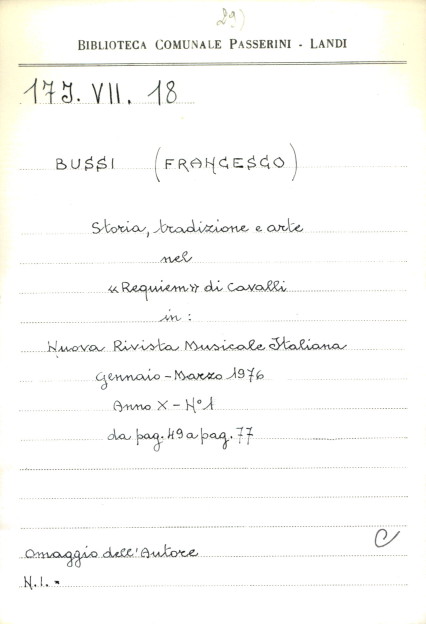 29)
BIBLIOTECA COMUNALE PASSERINI - LANDI
17J. VII. 18
BUSSI (FRANCESCO)
Storia, tradizione e arte
nel
«Requiem» di Cavalli
in :
Nuova Rivista Musicale Italiana
Gennaio - Marzo 1976
Anno X - N° 1
da pag. 49 a pag. 77
C
Omaggio dell'Autore
N.1. -